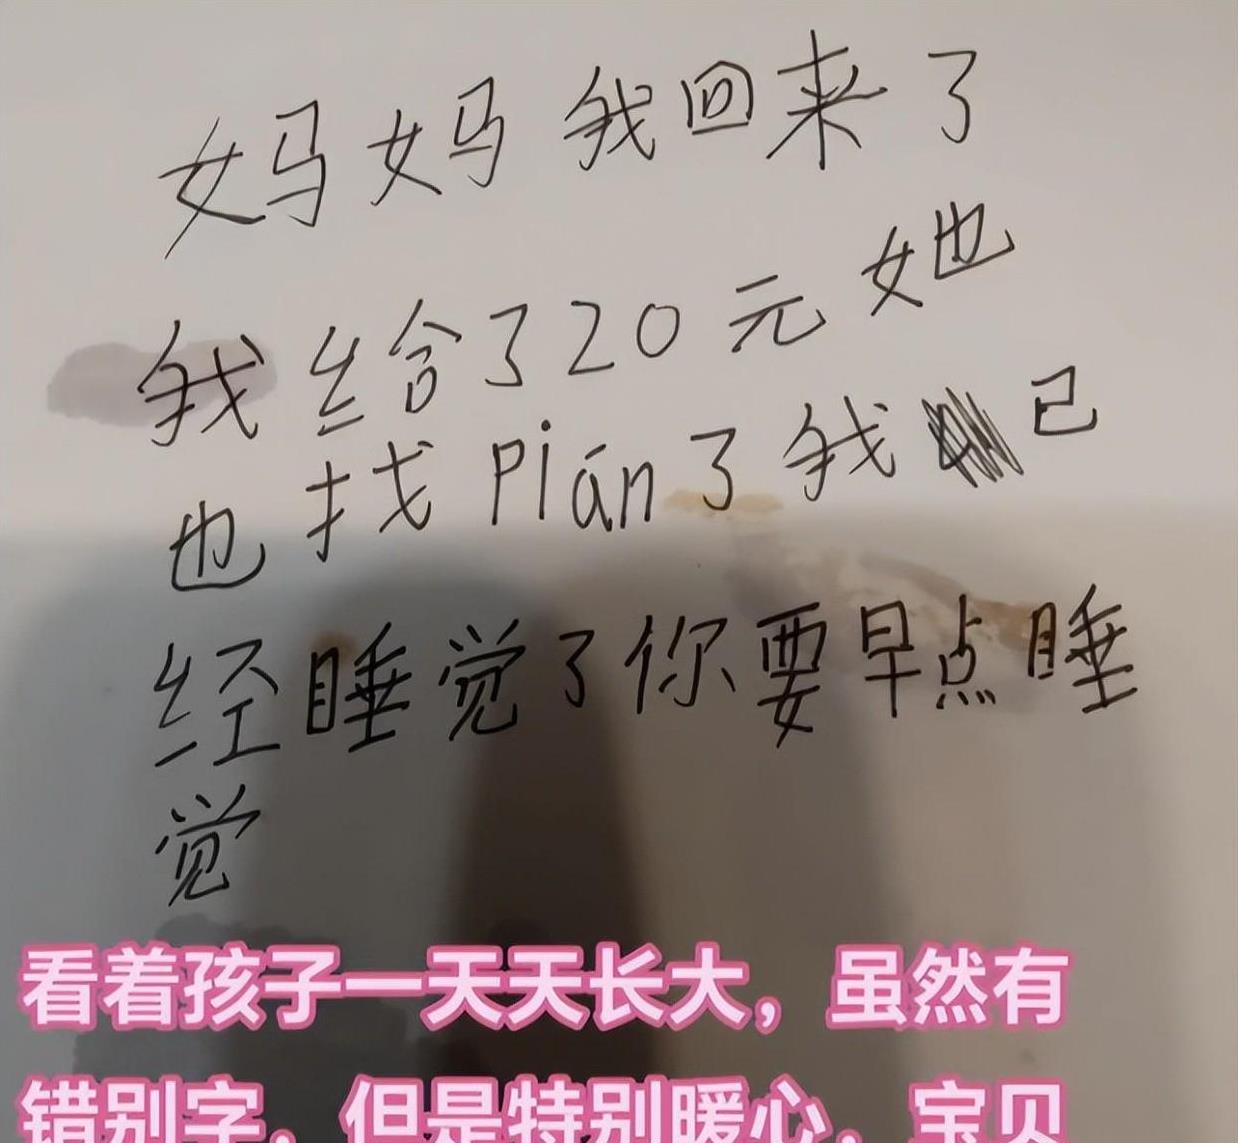 妈妈我回来了
我给了20元她
也找Pián了我已
经睡觉了你要早点睡
觉
看着孩子一天天长大，虽然有
错别字，但是特别暖心，宝贝